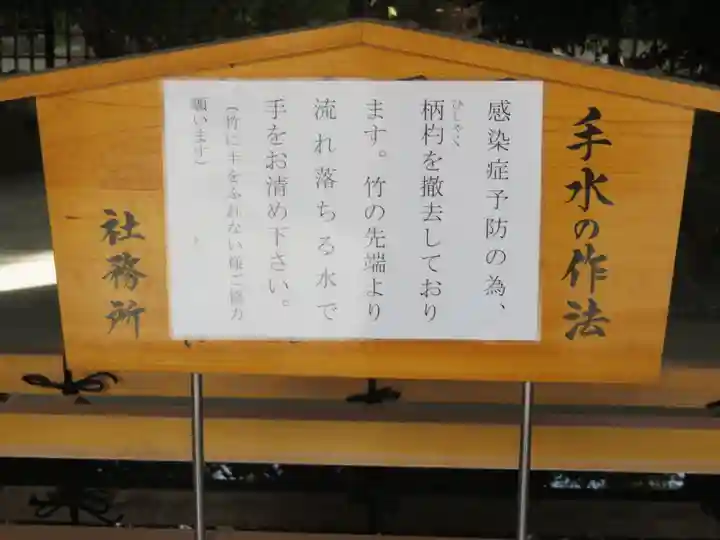 手水の作法
感染症予防の為、
柄杓を撤去しており
ひしゃく
ます。竹の先端より
流れ落ちる水で
手をお清め下さい。
（竹に手をふれない様ご協力
願います）
社務所